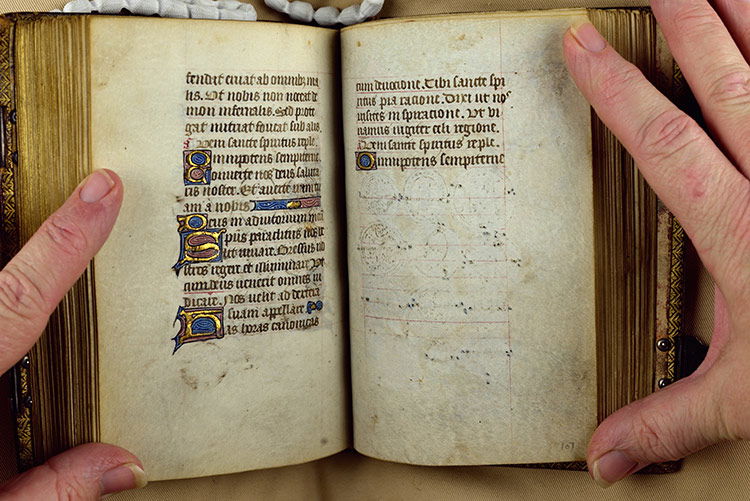 fendat eruat ab omnibus ma
lis. Et nobis non noceat de
mon infernalis. Sed prote
gat nutriat foueat sub alis.
Veni sancte spiritus reple.
Omnipotens sempiterne
Conuerte nos deus saluta
ris noster. Et auerte iram tu
am a nobis
Deus in adiutorium meū
Spūs paraclitus nos ve
let iuuare. Gressus no
stros regere et illuminare. Vt
cum deus venerit omnes iu
dicare. Nos velit ad dextera
suam appellare.
Has horas canonicas
cum deuocione. Tibi sancte spi
ritus pia racione. Dixi ut nos
visites inspiracione. Et vi
uamus iugiter celi regione.
Veni sancte spiritus reple.
Omnipotens sempiterne
107